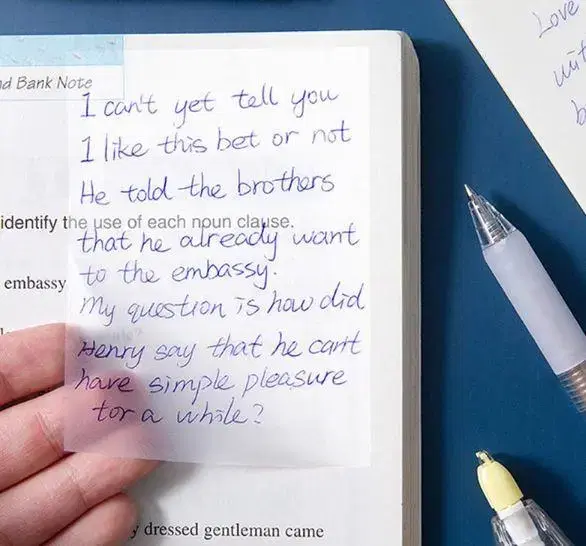 nd Bank Note
I can't yet tell you
I like this bet or not
He told the brothers
identify the use of each noun clause.
that he already want
embassy
to the embassy.
My question is how did
Henry say that he can't
have simple pleasure
tor a while?
y dressed gentleman came
Love